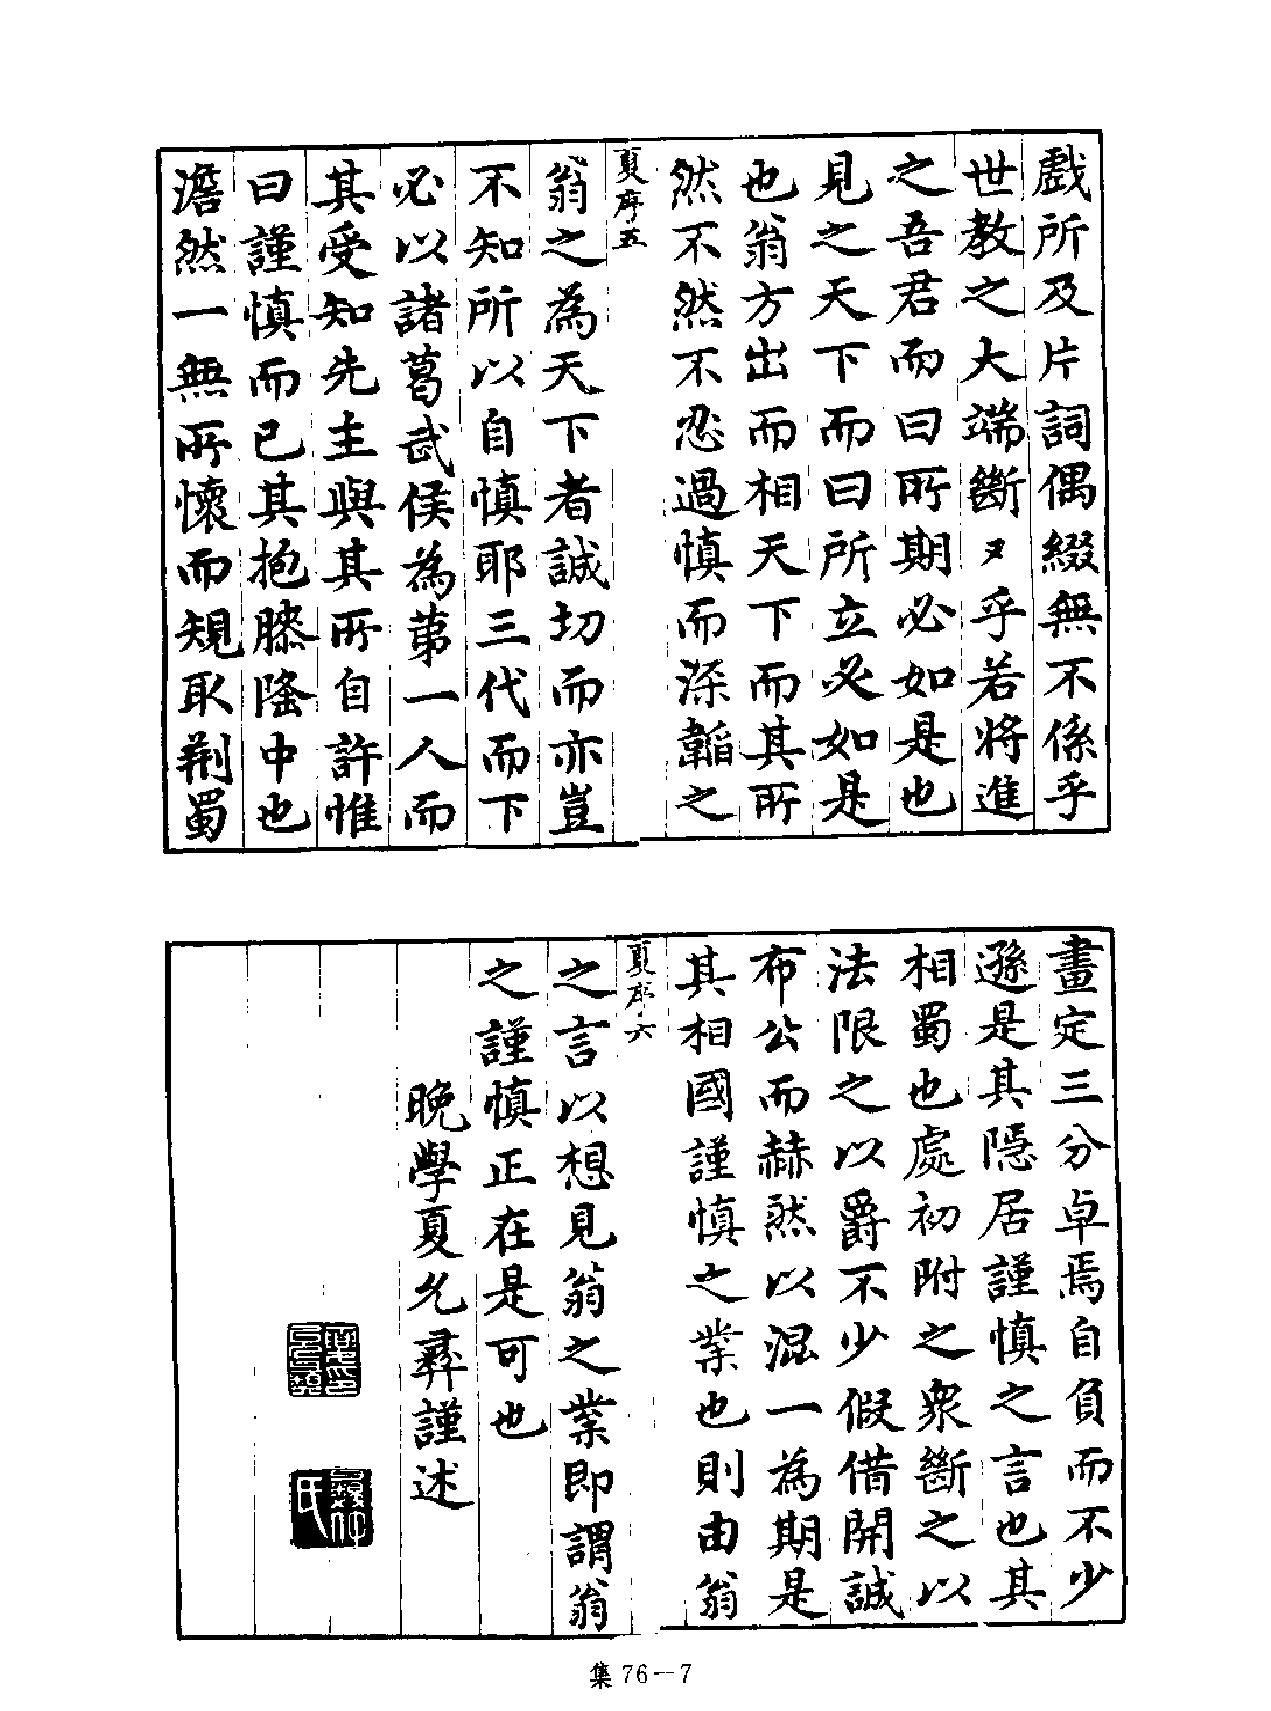 戲所及片詞偶綴無不係乎
世教之大端斷斷乎若將進
之吾君而曰所期必如是也
見之天下而曰所立必如是
也翁方出而相天下而其所
然不然不忍過慎而深韜之
夏序五
翁之為天下者誠切而亦豈
不知所以自慎耶三代而下
必以諸葛武侯為第一人而
其受知先主與其所自許惟
曰謹慎而已其抱膝隆中也
澹然一無所懷而規取荆蜀
畫定三分卓焉自負而不少
遜是其隱居謹慎之言也其
相蜀也處初附之衆斷之以
法限之以爵不少假借開誠
布公而赫然以混一為期是
其相國謹慎之業也則由翁
夏序六
之言以想見翁之業即謂翁
之謹慎正在是可也
晚學夏允彞謹述
集76-7